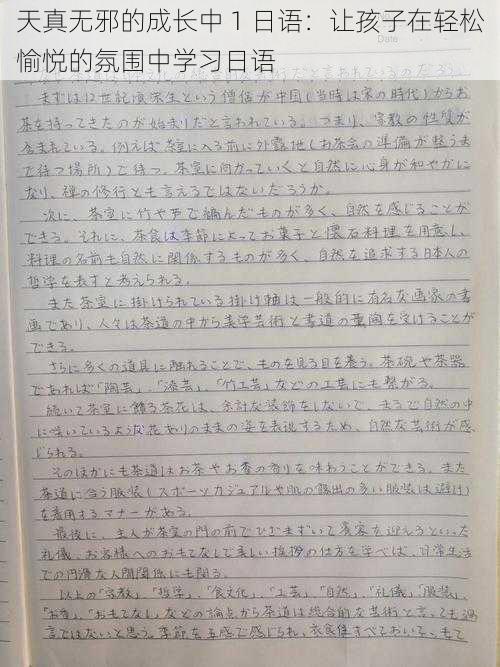 天真无邪的成长中 1 日语：让孩子在轻松
愉悦的氛围中学习日语
だと言われているのだろう。
まずは12世紀頃栄西という僧侶が中国（当時は宋の時代）からお
茶を持ってきたのが始まりだと言われている。つまり、宗教の性質が
含まれている。例えば茶室に入る前に外露地（お茶会の準備が整うま
で待つ場所）で待つ。茶室に向かっていくと自然に心身が和やかに
なり、禅の修行とも言えるではないだろうか。
次に、茶室に竹や芦で編んだものが多く、自然を感じることが
できる。それに、茶食は季節によってお菓子と懐石料理を用意し、
料理の名前も自然に関係するものが多く、自然を追求する日本人の
哲学を表すと考えられる。
また茶室に掛けられている掛け軸は一般的に有名な画家の書
画であり、人々は茶道の中から美学芸術と書道の薫陶を受けることが
できる。
さらに多くの道具に触れることで、ものを見る目を養う。茶碗や茶器
であれば「陶芸」、「漆芸」、「竹工芸」などの工芸にも繋がる。
続いて茶室に飾る茶花は、余計な装飾をしないで、まるで自然の中
に咲いているような花ありのままの姿を表現するため、自然な芸術が感
じられる。
そのほかにも茶道はお茶やお香の香りを味わうことができる。また
茶道に合う服装（スポーツカジュアルや肌の露出の多い服装は避け）
を着用するマナーがある。
最後に、主人が茶室の門の前でひざまずいて賓客を迎えるといった
礼儀、お客様へのおもてなしで美しい挨拶の仕方を学べば、日常生活
での円滑な人間関係にも関る。
以上の「宗教」、「哲学」、「食文化」、「工芸」、「自然」、「礼儀」、「服装」、
「お香」、「おもてなし」などの論点から茶道は総合的な芸術と言っても過
言ではないと思う。季節を五感で感じられ、衣食住すべておいる、もて